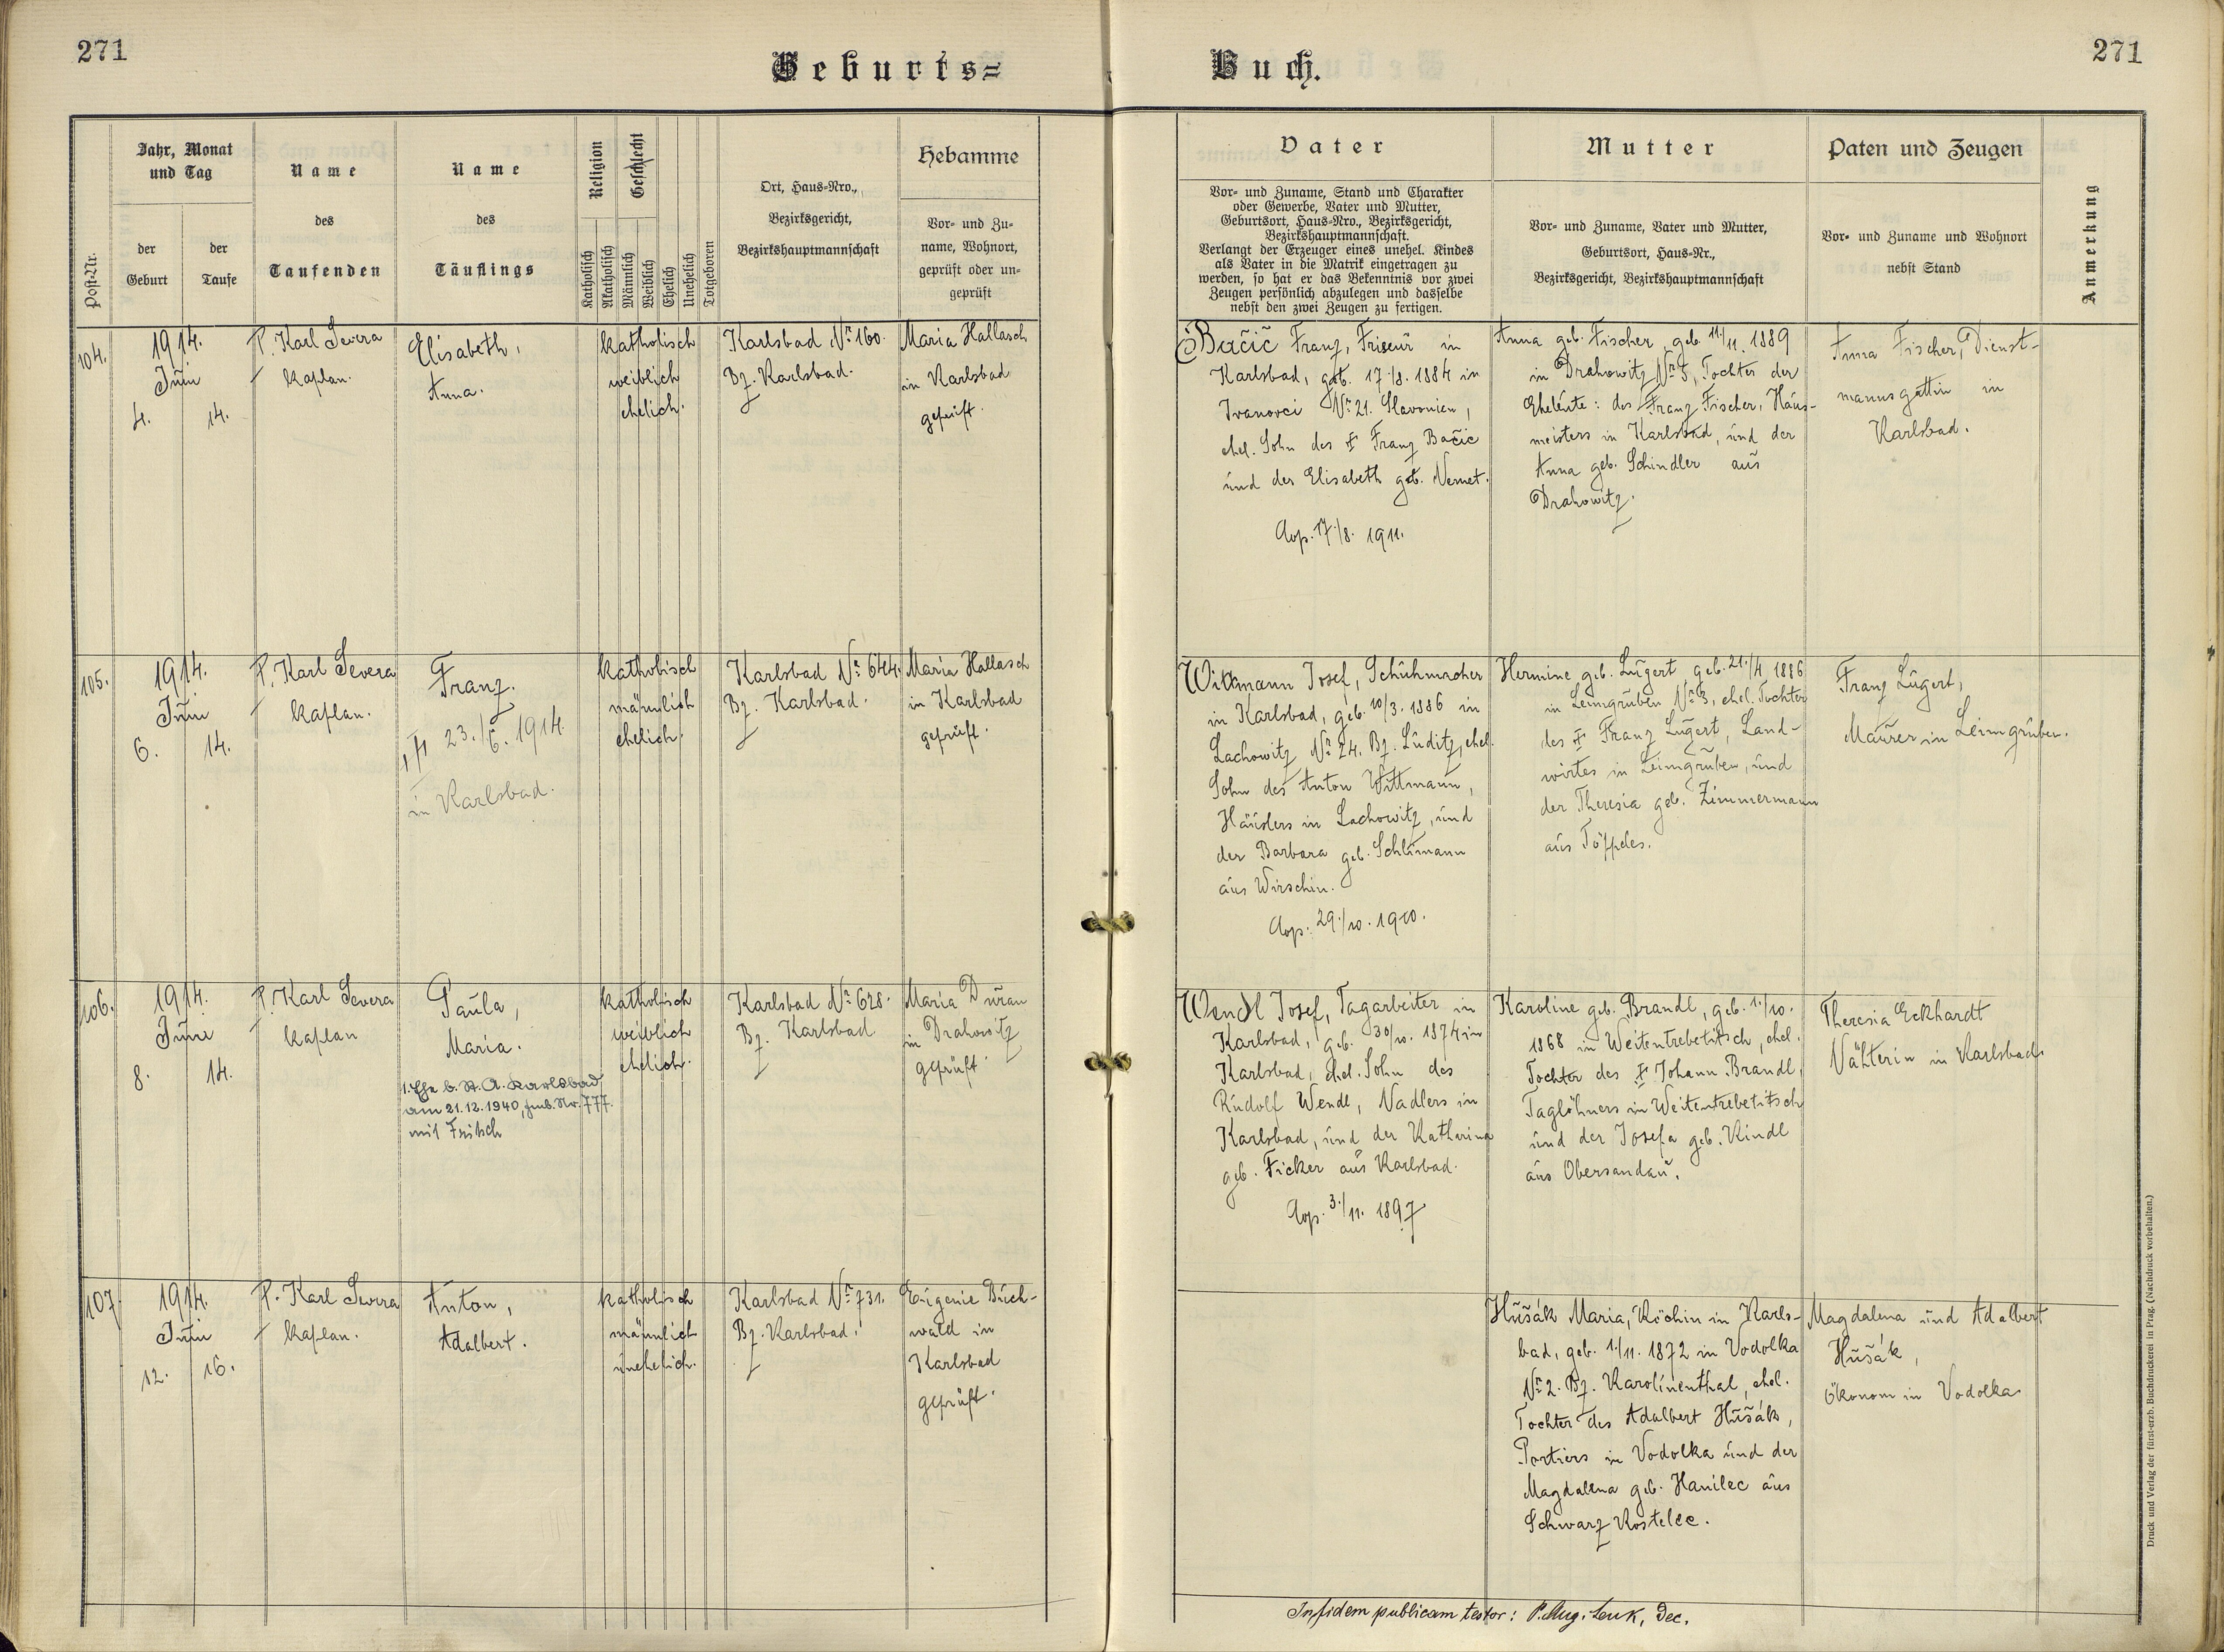 271
Geburts=
Buch.
271
Post-Nr.
Jahr, Monat
und Tag
der
Geburt
der
Taufe
Name
des
Taufenden
Name
des
Täuflings
Religion
Geschlecht
Katholisch
Akatholisch
Männlich
Weiblich
Ehelich
Unehelich
Totgeboren
Ort, Haus=Nro.,
Bezirksgericht,
Bezirkshauptmannschaft
Hebamme
Vor= und Zu=
name, Wohnort,
geprüft oder un=
geprüft
Vater
Vor= und Zuname, Stand und Charakter
oder Gewerbe, Vater und Mutter,
Geburtsort, Haus=Nro., Bezirksgericht,
Bezirkshauptmannschaft.
Verlangt der Erzeuger eines unehel. Kindes
als Vater in die Matrik eingetragen zu
werden, so hat er das Bekenntnis vor zwei
Zeugen persönlich abzulegen und dasselbe
nebst den zwei Zeugen zu fertigen.
Mutter
Vor= und Zuname, Vater und Mutter,
Geburtsort, Haus=Nr.,
Bezirksgericht, Bezirkshauptmannschaft
Paten und Zeugen
Vor= und Zuname und Wohnort
nebst Stand
Anmerkung
104.
1914.
Juni
4. 14.
P. Karl Severa
Kaplan.
Elisabeth,
Anna.
katholisch
weiblich
ehelich.
Karlsbad Nr. 160.
Bz. Karlsbad.
Maria Hallasch
in Karlsbad
geprüft.
Bačič Franz, Friseur in
Karlsbad, geb. 17./8. 1884 in
Ivanovci Nr. 21. Slavonien,
ehel. Sohn des ‡ Franz Bačic
und der Elisabeth geb. Nemet.
Cop. 17./8. 1911.
Anna geb. Fischer, geb. 11./11. 1889
in Drahowitz Nr. 5, Tochter der
Eheleute: des Franz Fischer, Haus-
meisters in Karlsbad, und der
Anna geb. Schindler aus
Drahowitz.
Anna Fischer, Dienst-
mannsgattin in
Karlsbad.
105.
1914.
Juni
6. 14.
P. Karl Severa
Kaplan.
Franz.
‡ 23./6. 1914.
in Karlsbad.
katholisch
männlich
ehelich.
Karlsbad Nr. 644.
Bz. Karlsbad.
Maria Hallasch
in Karlsbad
geprüft.
Wittmann Josef, Schuhmacher
in Karlsbad, geb. 10/3. 1886 in
Lachowitz Nr. 24. Bz. Luditz, ehel.
Sohn des Anton Wittmann,
Häuslers in Lachowitz, und
der Barbara geb. Schlimann
aus Wirschin.
Cop. 29./10. 1910.
Hermine geb. Lugert, geb. 21./4. 1886
in Leimgruben Nr. 3, ehel. Tochter
des ‡ Franz Lugert, Land-
wirtes in Leimgruben, und
der Theresia geb. Zimmermann
aus Töppeles.
Franz Lugert,
Maurer in Leimgruben.
106.
1914.
Juni
8. 14.
P. Karl Severa
Kaplan
Paula,
Maria.
1. Ehe b. St. A. Karlsbad
am 21.12.1940, Nr. 777.
mit Fritsch
katholisch
weiblich
ehelich.
Karlsbad Nr. 628.
Bz. Karlsbad
Maria Duran
in Drahowitz
geprüft.
Wendl Josef, Tagarbeiter in
Karlsbad, geb. 30/10. 1874 in
Karlsbad, ehel. Sohn des
Rudolf Wendl, Nadlers in
Karlsbad, und der Katharina
geb. Ficker aus Karlsbad.
Cop. 3./11. 1897
Karoline geb. Brandl, geb. 1./10.
1868 in Weitentrebetitsch, ehel.
Tochter des ‡ Johann Brandl,
Taglöhners in Weitentrebetitsch
und der Josefa geb. Kindl
aus Obersandau.
Theresia Eckhardt
Nähterin in Karlsbad.
107.
1914.
Juni
12. 16.
P. Karl Severa
Kaplan.
Anton,
Adalbert.
katholisch
männlich
unehelich.
Karlsbad Nr. 731.
Bz. Karlsbad.
Eugenie Buch-
wald in
Karlsbad
geprüft.
Hušák Maria, Köchin in Karls-
bad, geb. 1./11. 1872 in Vodolka
Nr. 2. Bz. Karolinenthal, ehel.
Tochter des Adalbert Hušák,
Portiers in Vodolka und der
Magdalena geb. Hanilec aus
Schwarz Kostelec.
Magdalena und Adalbert
Hušák,
Ökonom in Vodolka
In fidem publicam testor: P. Aug. Lenk, Dec.
Druck und Verlag der fürst-erzb. Buchdruckerei in Prag. (Nachdruck vorbehalten.)